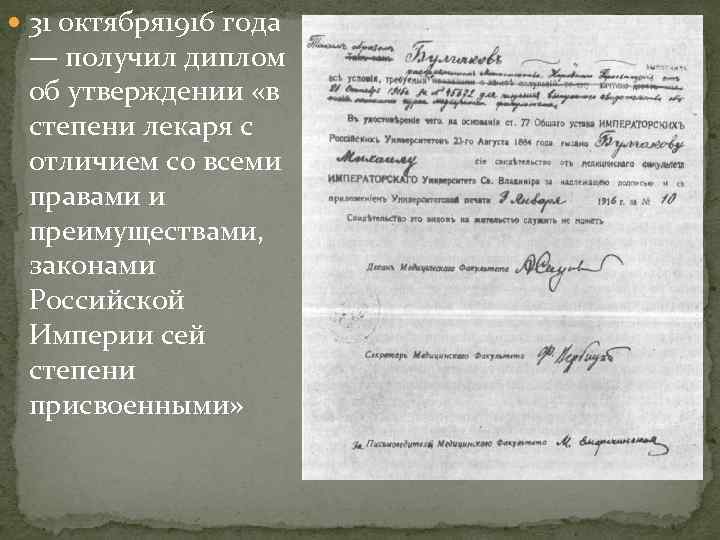 • 31 октября1916 года
— получил диплом
об утверждении «в
степени лекаря с
отличием со всеми
правами и
преимуществами,
законами
Российской
Империи сей
степени
присвоенными»
Такимъ образомъ Булгаковъ выполнилъ
всѣ условія, требуемыя
Въ удостовѣреніе чего на основаніи ст. 77 Общаго устава ИМПЕРАТОРСКИХЪ
Россійскихъ Университетовъ 23-го Августа 1884 года выдано Булгакову
Михаилу сіе свидѣтельство отъ медицинскаго факультета
ИМПЕРАТОРСКАГО Университета Св. Владимира за надлежащею подписью и съ
приложеніемъ Университетской печати 9 Января 1916 г. за № 10
Свидѣтельство это видомъ на жительство служить не можетъ
Деканъ Медицинскаго Факультета
Секретарь Медицинскаго Факультета
За Письмоводителя Медицинскаго Факультета